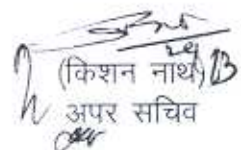 (किशन नाथ)
अपर सचिव